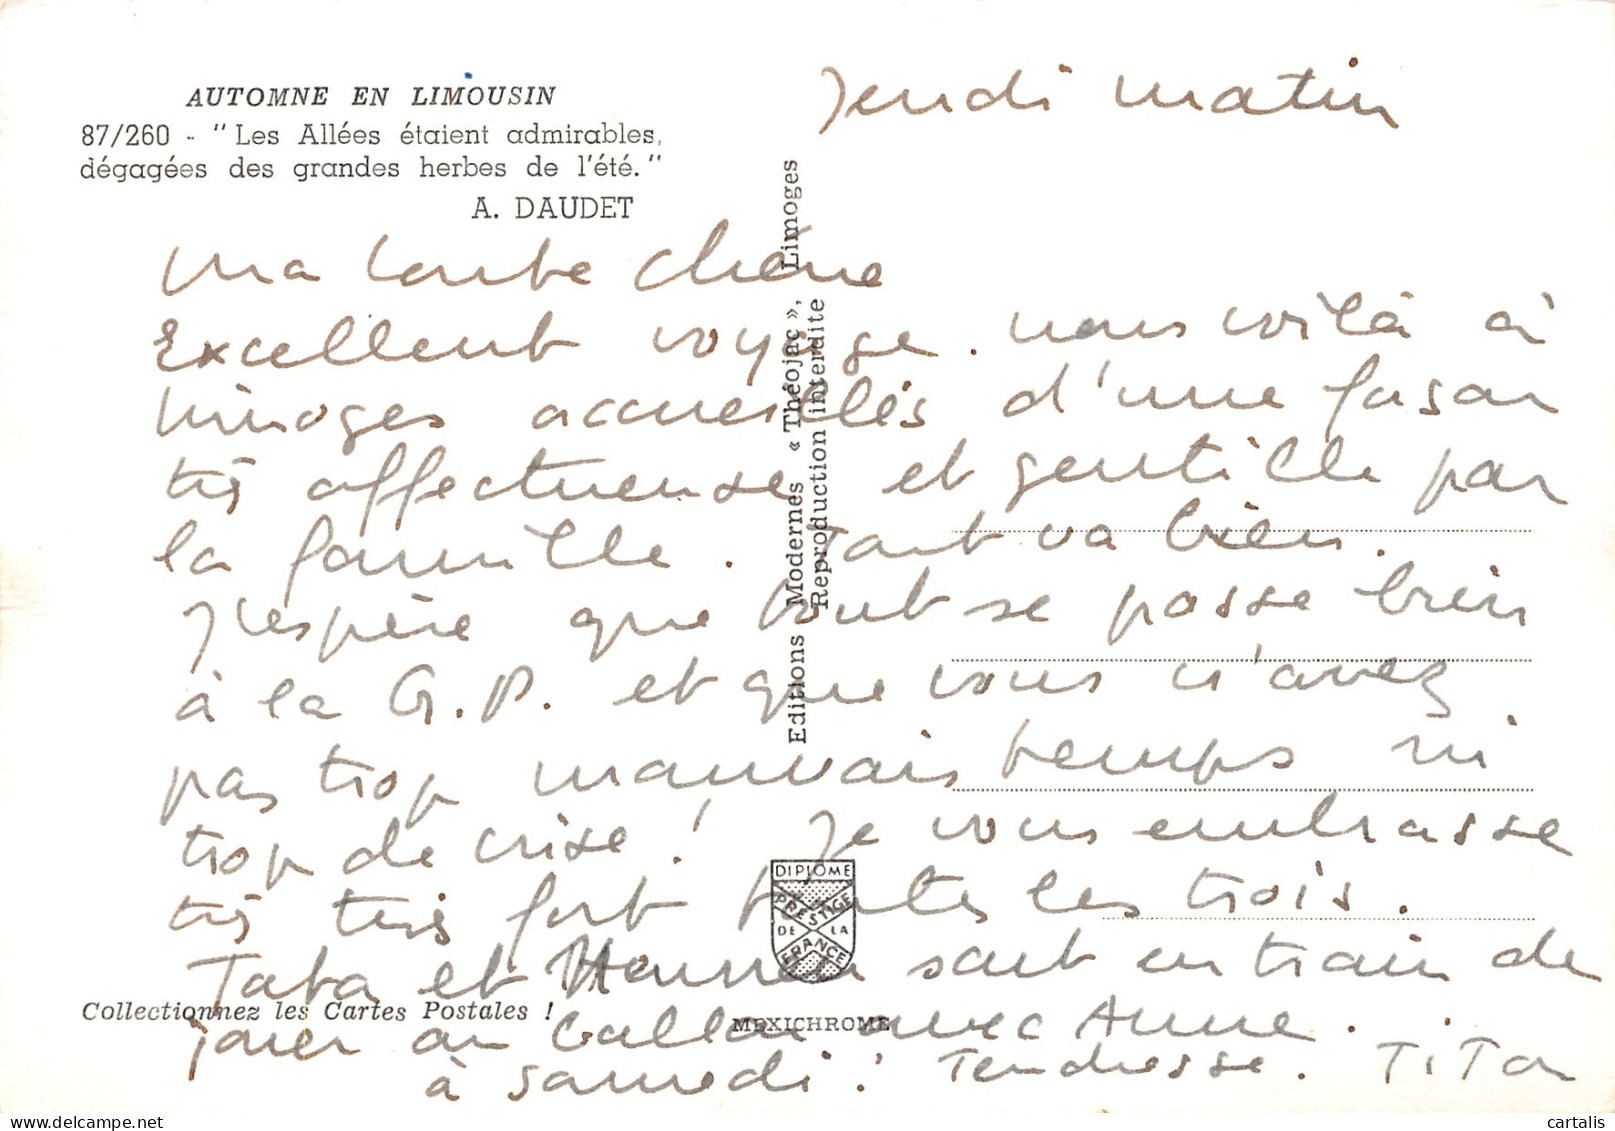 AUTOMNE EN LIMOUSIN
87/260 - "Les Allées étaient admirables,
dégagées des grandes herbes de l'été."
A. DAUDET
Jeudi matin
Ma chère
Excellent voyage. nous voilà à
Limoges accueillis d'une façon
très affectueuse et gentille par
la famille. Tout va bien.
J'espère que tout se passe bien
à la G.P. et que vous n'avez
pas trop mauvais temps ni
trop de crise! Je vous embrasse
très très fort toutes les trois.
Tata et sont en train de
jouer au ballon avec Anne.
à samedi! Tendresse. TiTa
Editions Modernes « Théojac », Limoges
Reproduction interdite
DIPLOME
PRESTIGE
DE LA
FRANCE
Collectionnez les Cartes Postales !
MEXICHROME
cartalis
www.delcampe.net